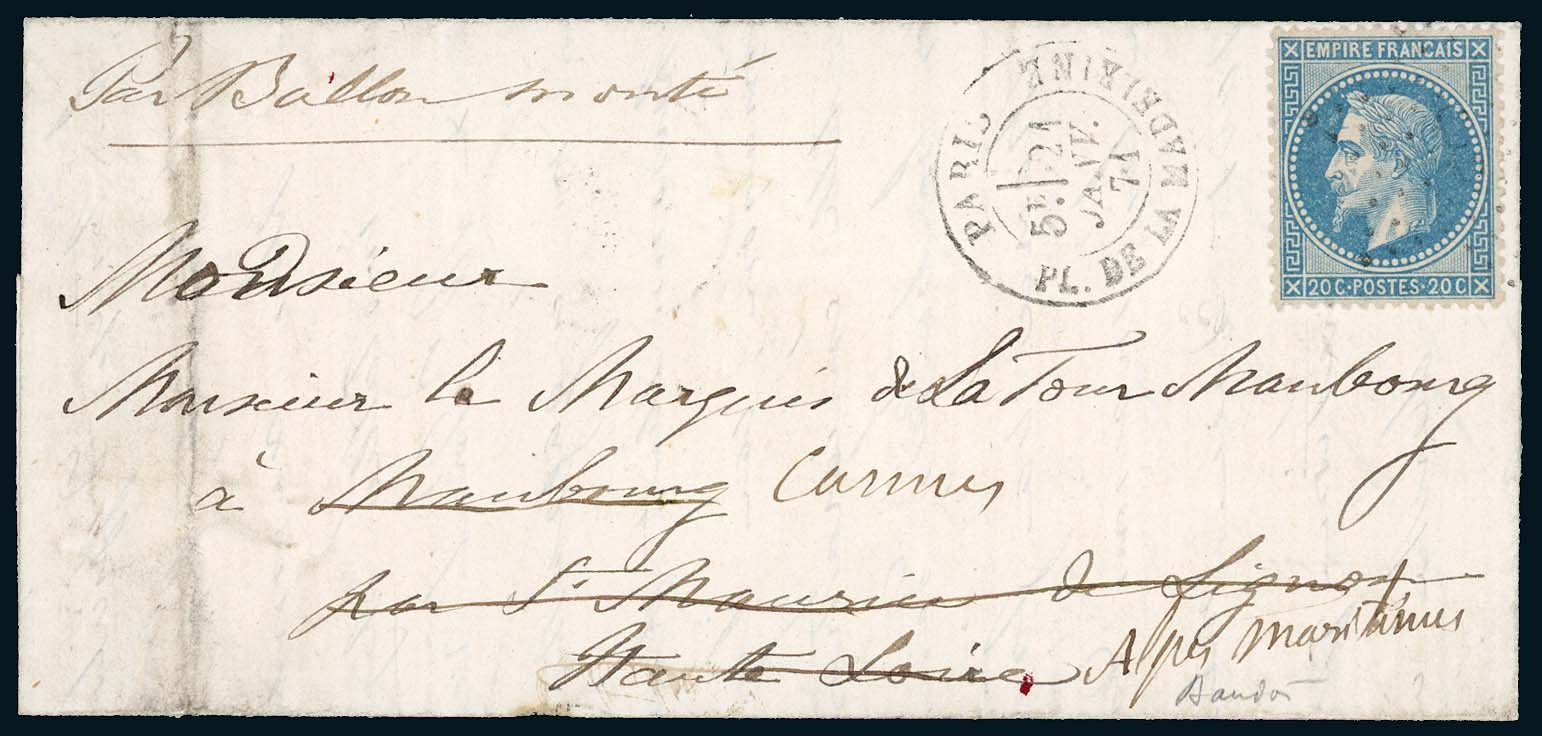 Par Ballon monté
PARIS PL. DE LA MADELEINE
5E 21
JANV.
71
EMPIRE FRANCAIS
20 C · POSTES · 20 C
Monsieur
Monsieur le Marquis de La Tour Maubourg
à Maubourg Cannes
par St Maurice de Lignon
Haute Loire Alpes maritimes